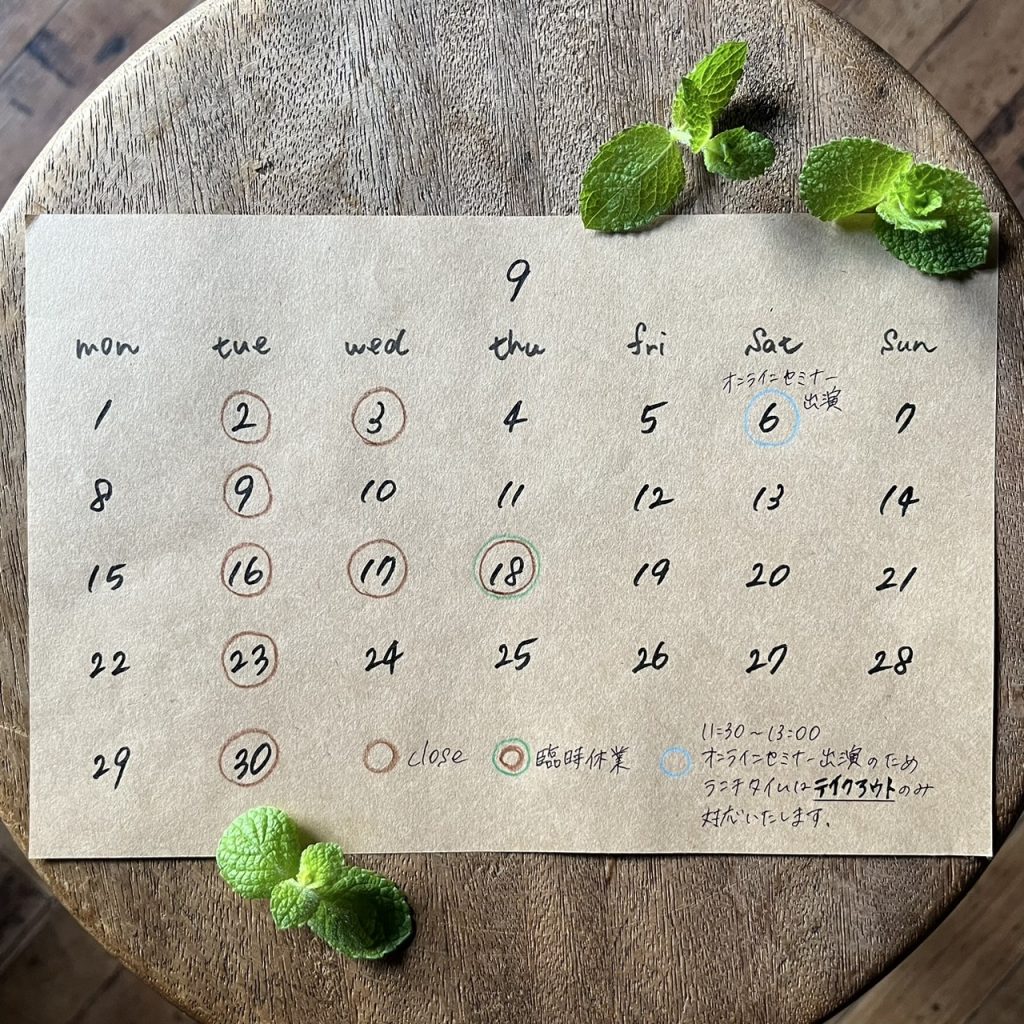 9
mon tue wed thu fri Sat Sun
オンラインセミナー
出演
1 2 3 4 5 6 7
8 9 10 11 12 13 14
15 16 17 18 19 20 21
22 23 24 25 26 27 28
29 30 close 臨時休業
11:30～13:00
オンラインセミナー出演のため
ランチタイムはテイクアウトのみ
対応いたします。